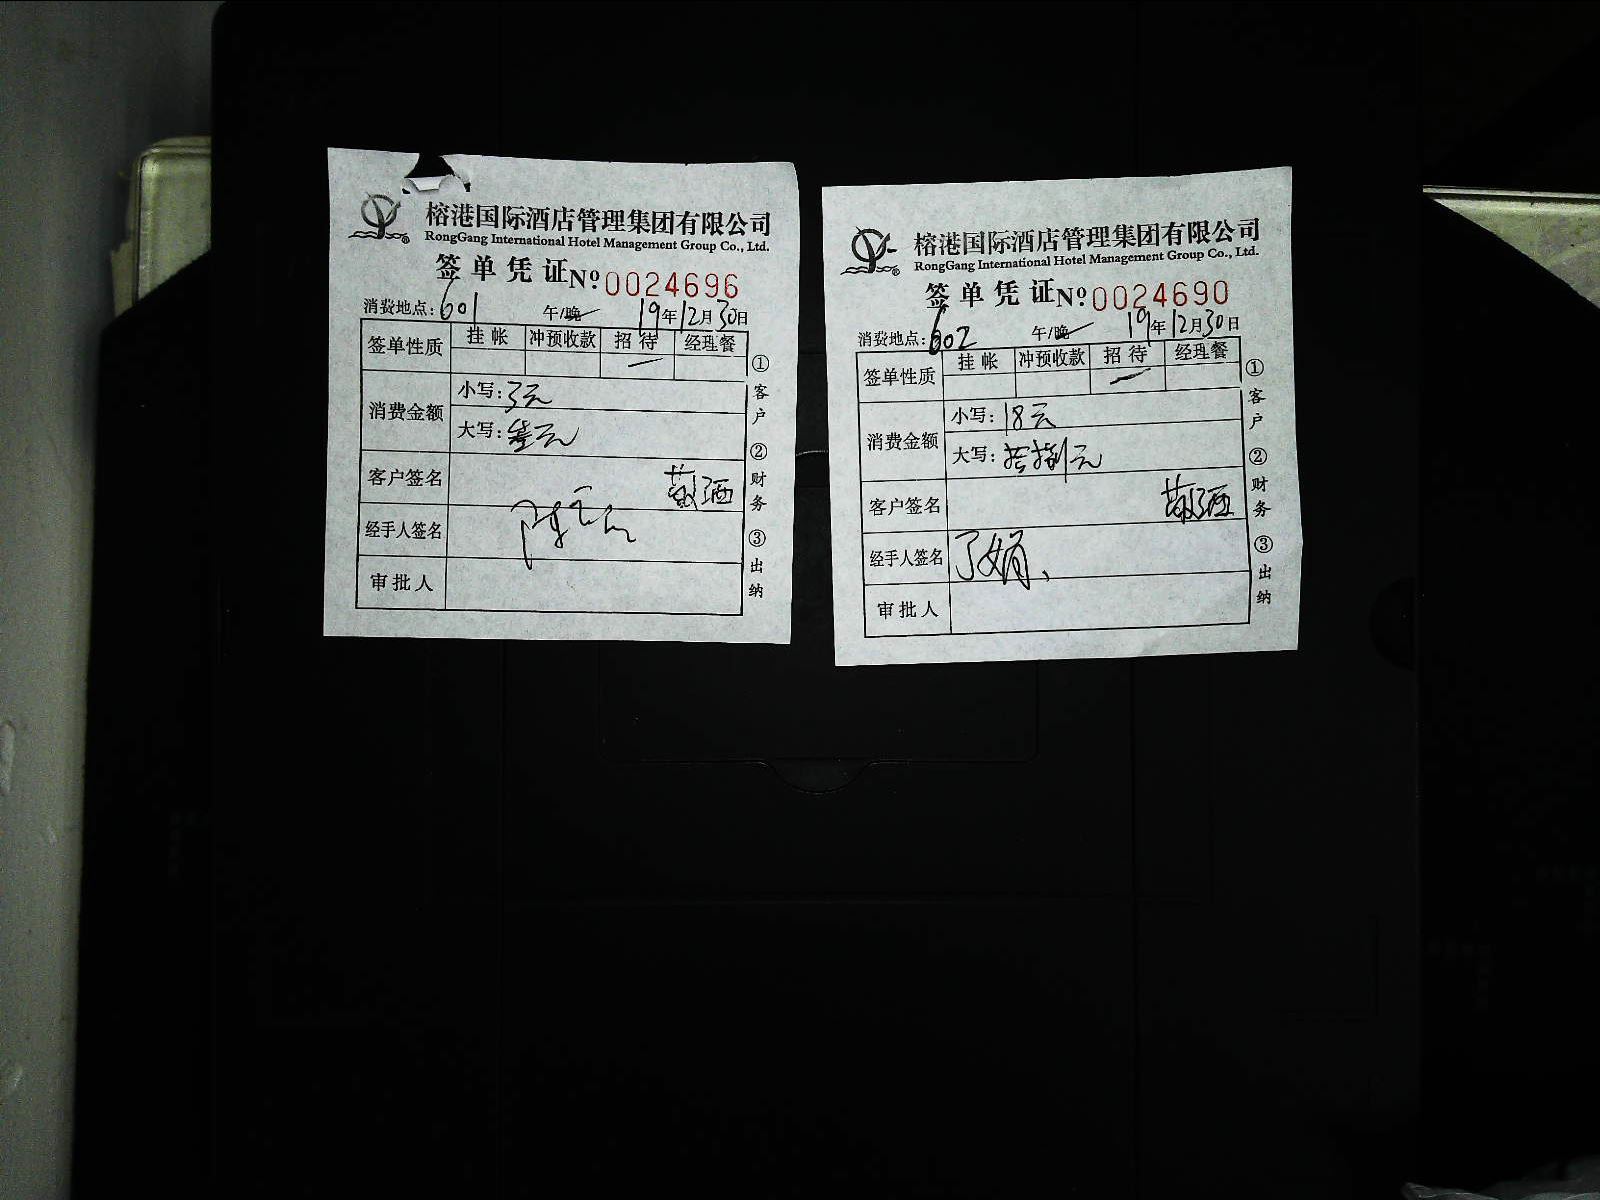 榕港国际酒店管理集团有限公司
RongGang International Hotel Management Group Co., Ltd.
签单凭证 Nº 0024696
消费地点：601 午/晚 19年12月30日
签单性质 挂帐 冲预收款 招待 经理餐
消费金额
小写：3元
大写：叁元
客户签名 敬酒
经手人签名
审批人
①客户 ②财务 ③出纳
榕港国际酒店管理集团有限公司
RongGang International Hotel Management Group Co., Ltd.
签单凭证 Nº 0024690
消费地点：602 午/晚 19年12月30日
签单性质 挂帐 冲预收款 招待 经理餐
消费金额
小写：18元
大写：拾捌元
客户签名 敬酒
经手人签名 丁娟
审批人
①客户 ②财务 ③出纳